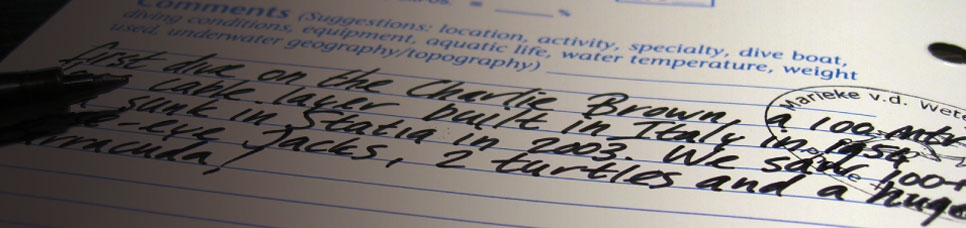 Comments (Suggestions: location, activity, specialty, dive boat,
diving conditions, equipment, aquatic life, water temperature, weight
used, underwater geography/topography)
first dive on the Charlie Brown, a 100-
cable layer built in Italy in 1954
sunk in Statia in 2003. We saw 100+
-eye Jacks, 2 turtles and a huge
Marieke v.d.